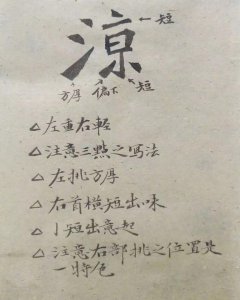 涼 ←短
方厚 偏下 短
△左重右輕
△注意三點之寫法
△左挑方厚
△右首橫短出味
△亅短出意起
△注意右部挑之位置是
一特色